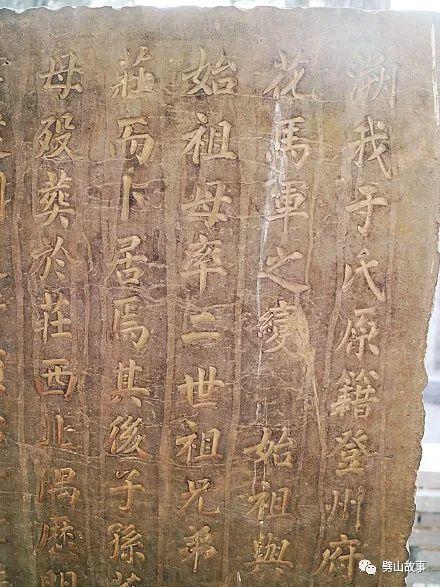 溯我于氏原籍登州府
花馬軍之變 始祖與
始祖母率二世祖兄弟
莊而卜居焉其後子孫
母歿葬於莊西北隅歷明
劈山故事